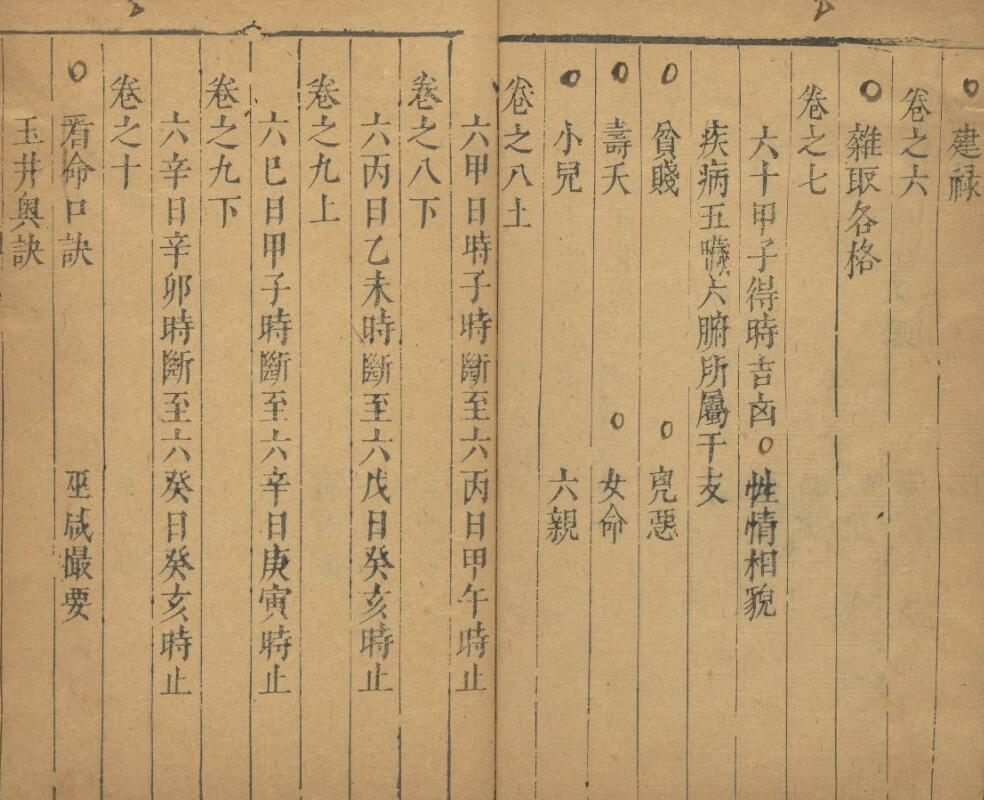 ○建禄
卷之六
○雜取各格
卷之七
六十甲子得時吉凶○性情相貌
疾病五臟六腑所屬干支
○貧賤 ○兇惡
○壽夭 ○女命
○小兒 六親
卷之八土
六甲日時子時斷至六丙日甲午時止
卷之八下
六丙日乙未時斷至六戊日癸亥時止
卷之九上
六巳日甲子時斷至六辛日庚寅時止
卷之九下
六辛日辛卯時斷至六癸日癸亥時止
卷之十
○看命口訣 巫咸撮要
玉井奥訣